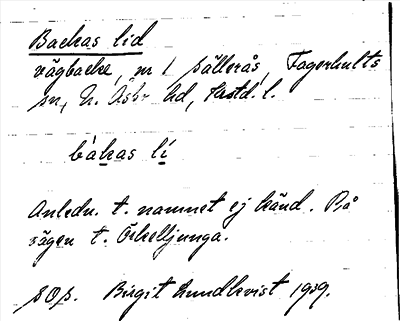 Backas lid
vägbacke, m 1 sällerås, Fagerhults
sn, N. Åsbo hd, Krstd. l.
bàkas lí
Anledn. t. namnet ej känd. På
vägen t. Örkelljunga.
sOs. Birgit Lundkvist 1939.